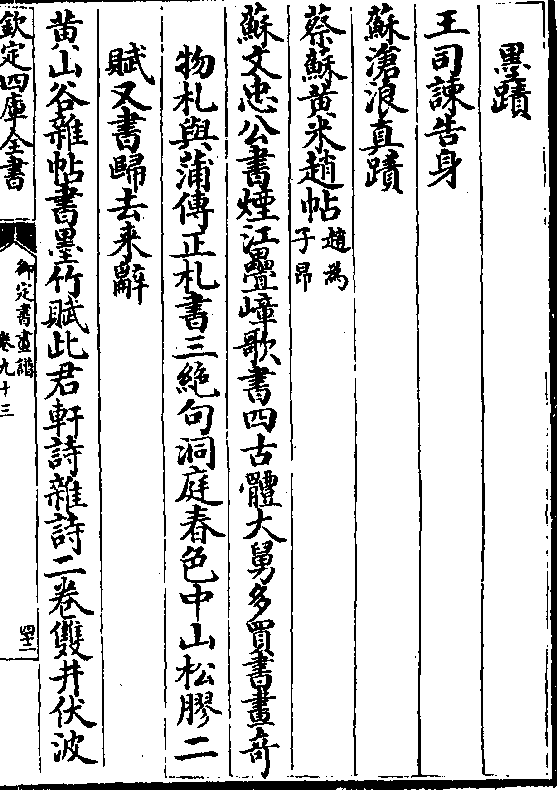 墨蹟
王司諫告身
蘇滄浪真蹟
蔡蘇黃米趙帖趙為子昻
蘇文忠公書煙江疊嶂歌書四古體大舅多買書畫竒
物札與蒲傳正札書三絶句洞庭春色中山松膠二
賦又書歸去来辭
黄山谷雜帖書墨竹賦此君軒詩雜詩二卷雙井伏波
欽定四庫全書
御定書畫譜
卷九十三
四十二